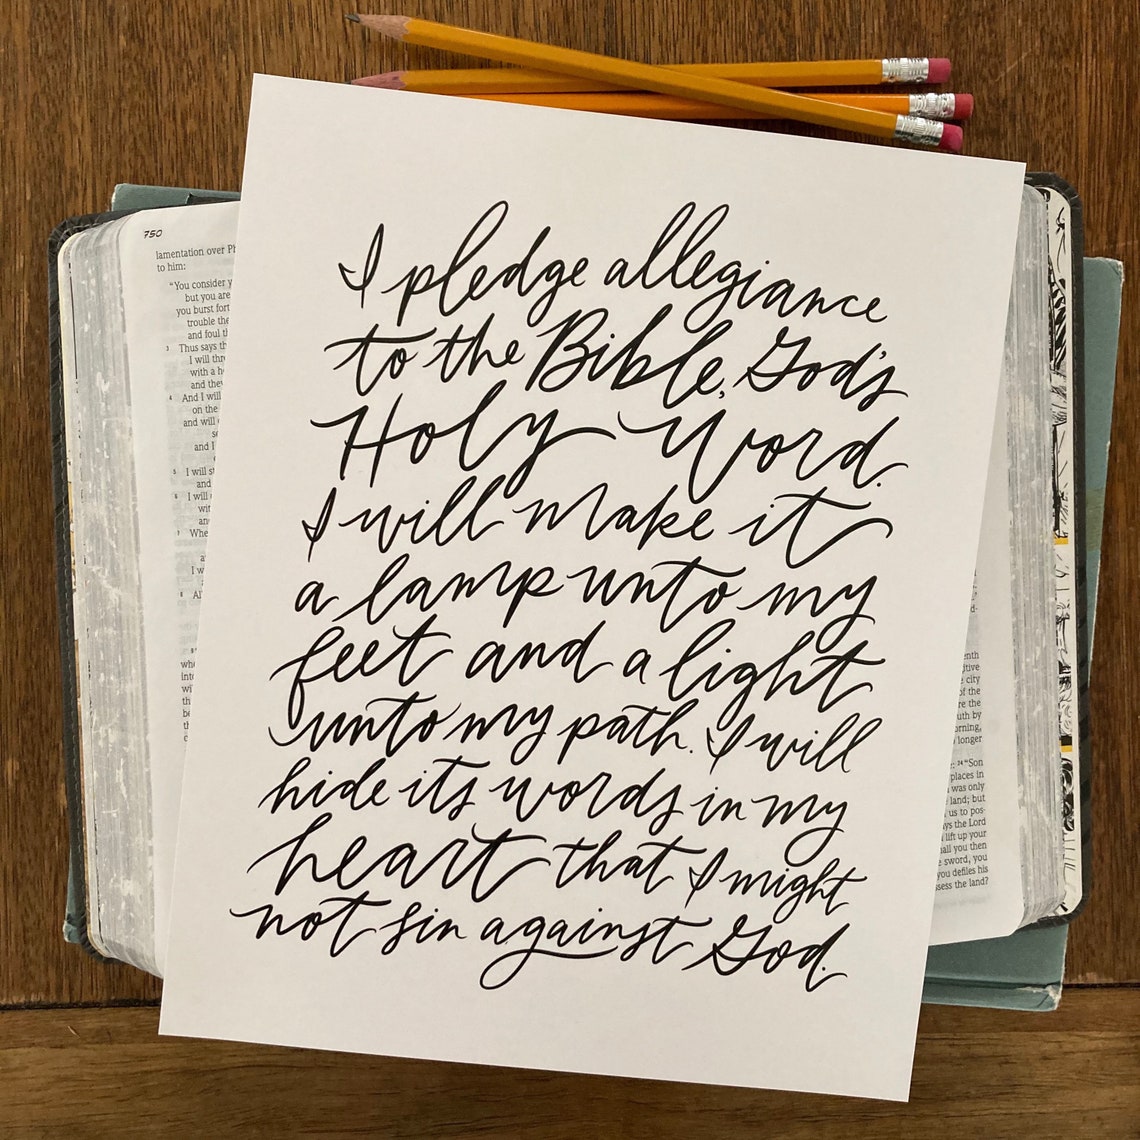 I pledge allegiance
to the Bible, God's
Holy Word.
I will make it
a lamp unto my
feet and a light
unto my path. I will
hide its words in my
heart that I might
not sin against God.
750
lamentation over
to him:
"You consider
but you are
you burst
trouble the
and foul
3 Thus says
I will
with a
and
4 And I will
on the
and will
and I
5 I will
and
6 I will
7
I
8
of the
the
city
by
longer
24 "Son
places in
was only
land; but
us to pos-
the Lord
lift up your
you then
sword, you
you defiles his
the land?